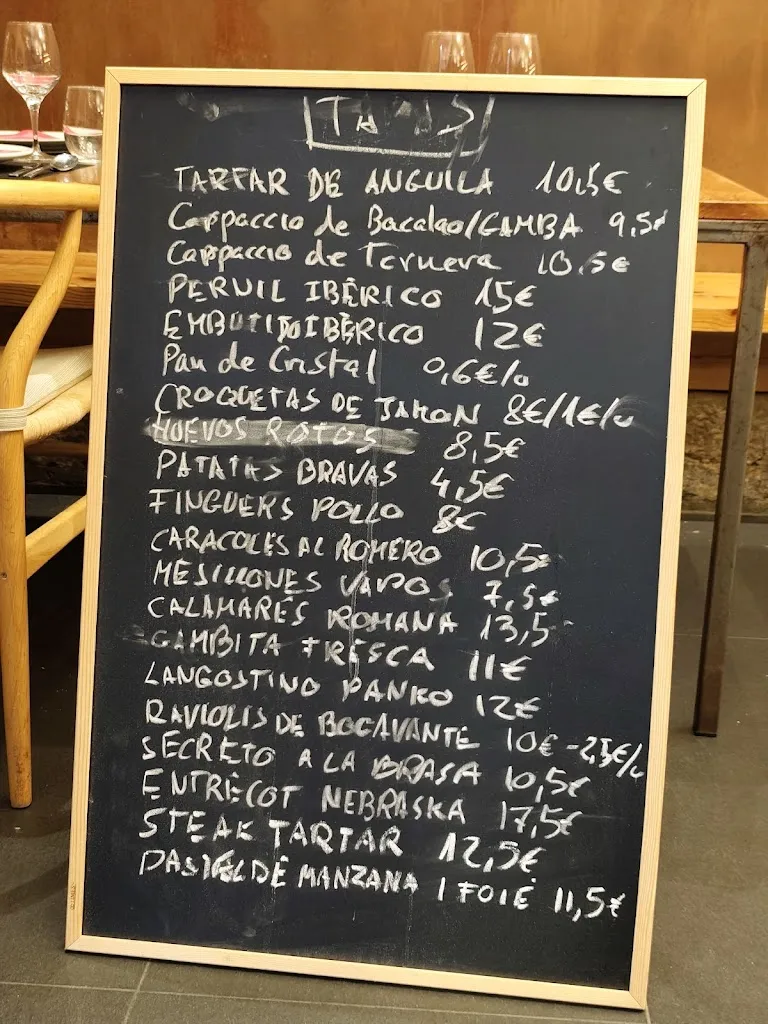 TARTAR DE ANGUILA 10,5€
Carpaccio de Bacalao/GAMBA 9,5€
Carpaccio de Ternera 10,5€
PERNIL IBÉRICO 15€
EMBUTIDO IBÉRICO 12€
Pan de Cristal 0,6€/u
CROQUETAS DE JAMON 8€/1€/u
HUEVOS ROTOS 8,5€
PATATAS BRAVAS 4,5€
FINGUERS POLLO 8€
CARACOLES AL ROMERO 10,5€
MESILLONES VAPOR 7,5€
CALAMARES ROMANA 13,5
GAMBITA FRESCA 11€
LANGOSTINO PANKO 12€
RAVIOLIS DE BOGAVANTE 10€-2,5€/u
SECRETO A LA BRASA 10,5€
ENTRECOT NEBRASKA 17,5€
STEAK TARTAR 12,5€
PASTEL DE MANZANA I FOIE 11,5€